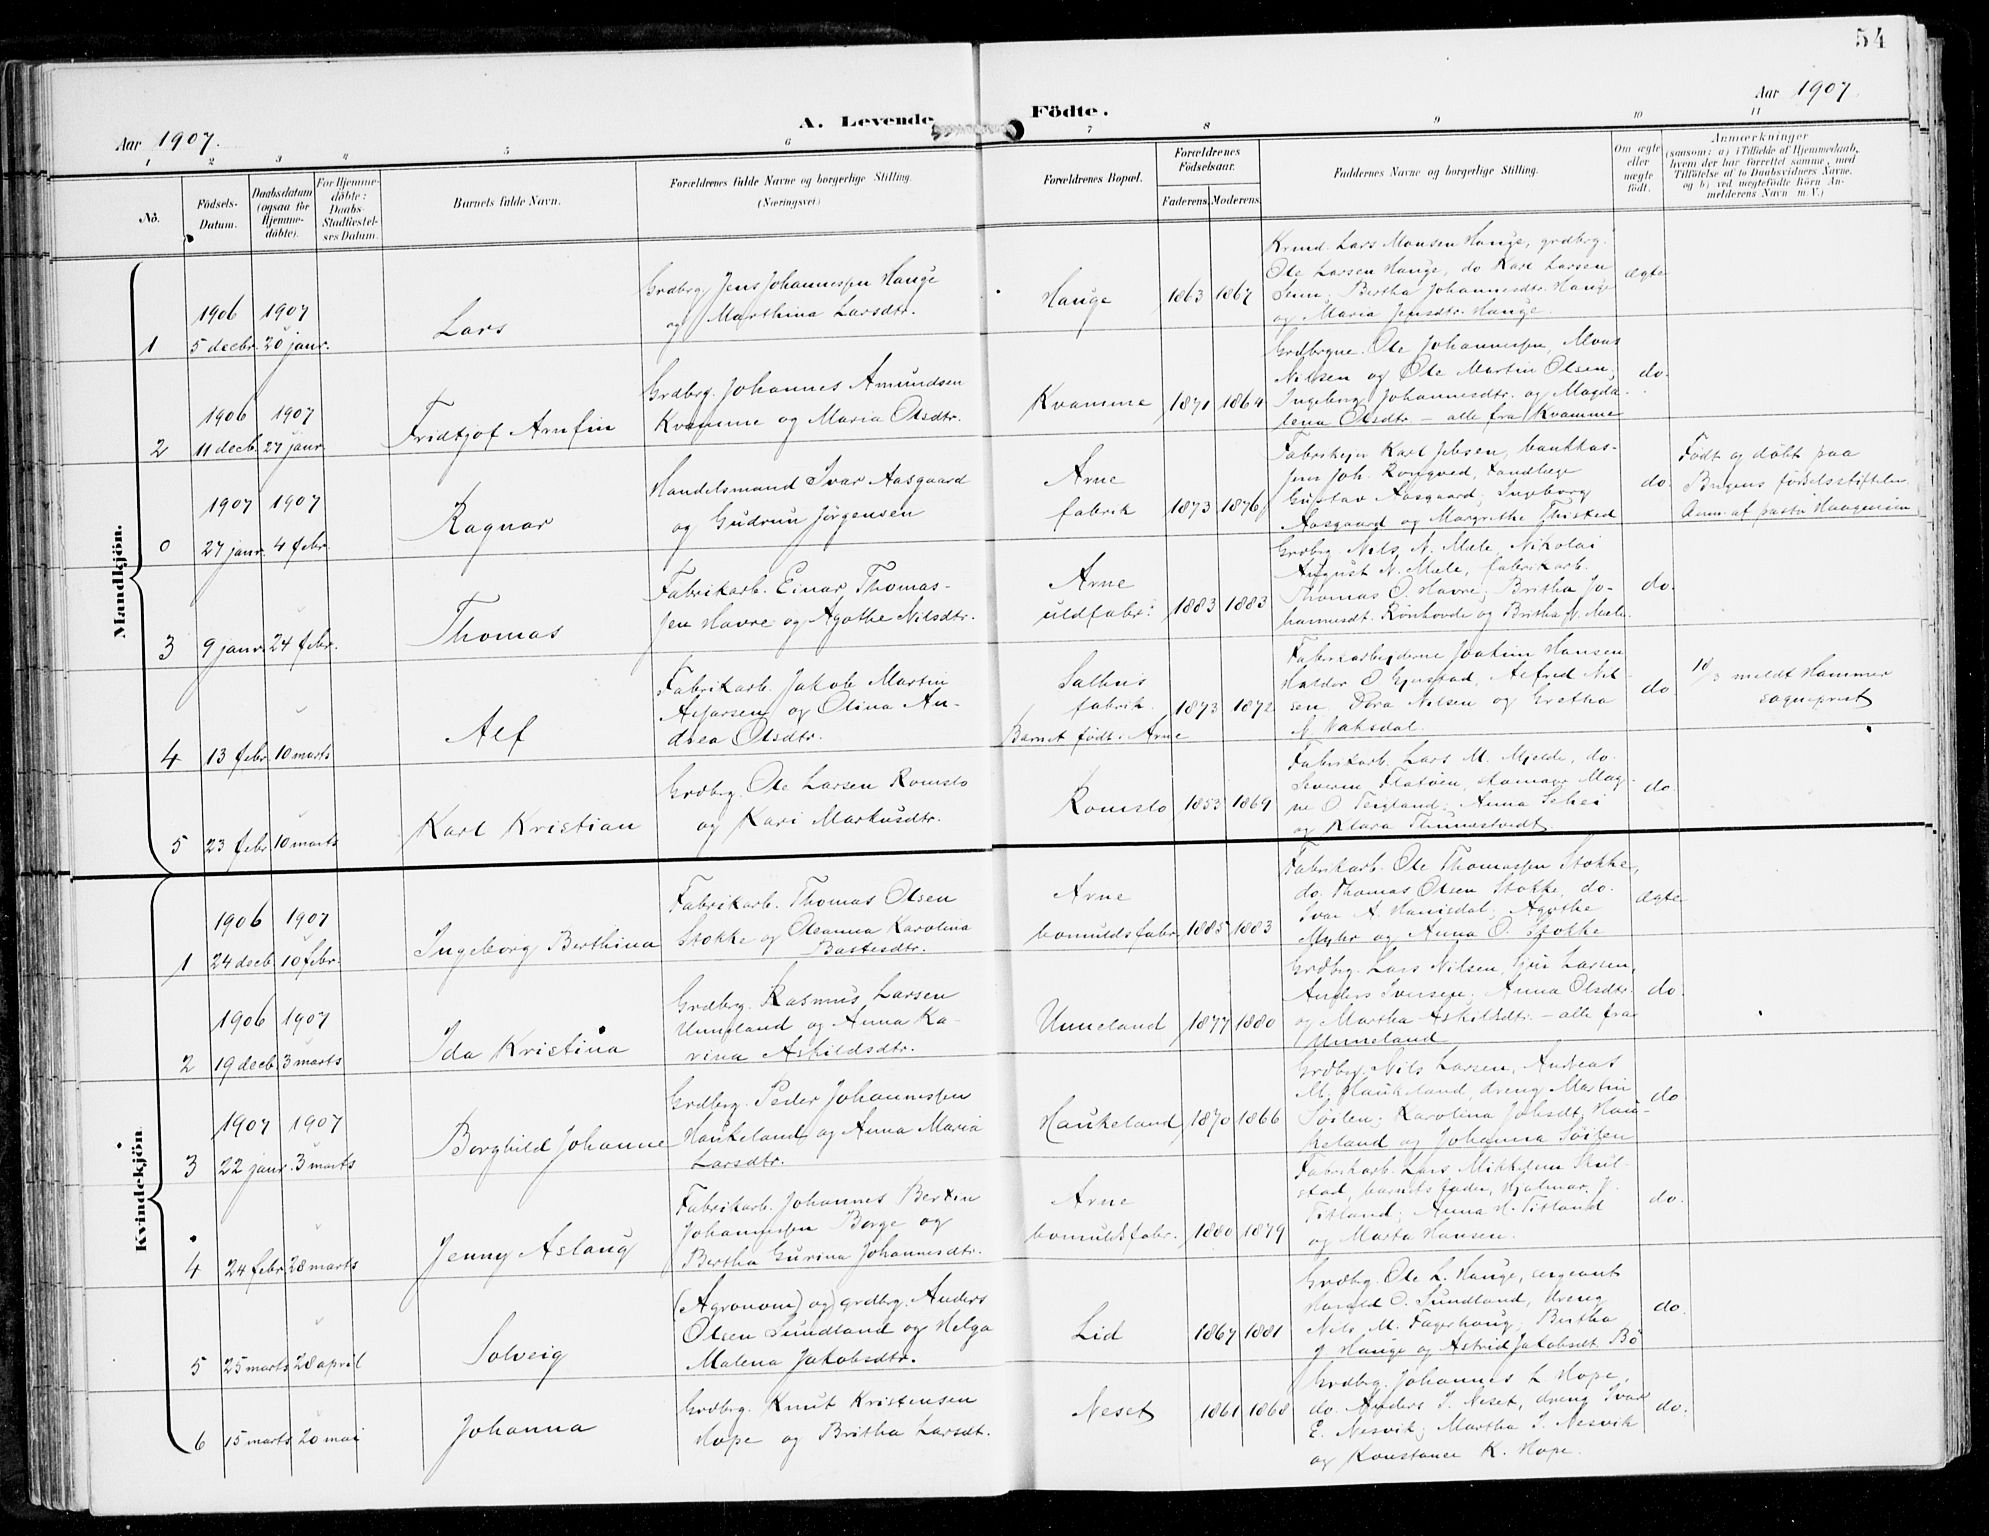 54
Aar 1907.
A. Levende Födte.
Aar 1907.
1 2 3 4 5 6 7 8 9 10 11
No.
Födsels-
Datum.
Daabsdatum
(ogsaa for
Hjemme-
döbte).
For Hjemme-
döbte:
Daabs-
Stadfæstel-
ses Datum.
Barnets fulde Navn.
Forældrenes fulde Navne og borgerlige Stilling.
(Næringsvei)
Forældrenes Bopæl.
Forældrenes
Födselsaar.
Faderens. Moderens.
Faddernes Navne og borgerlige Stilling.
Om ægte
eller
uægte
födt.
Anmærkninger
(saasom: a) i Tilfælde af Hjemmedaab,
hvem der har forrettet samme, med
Tilföielse af to Daabsvidners Navne.
og b) ved uægtefödte Börn An-
melderens Navn m. V.)
Mandkjön.
1
1906
5 decbr.
1907
20 janr.
Lars
Grdbrg. Jens Johannessen Hauge
og Marthina Larsdtr.
Hauge
1863 1867
Krmd. Lars Monsen Hauge, grdbrg.
Ole Larsen Hauge, do Karl Larsen
Bertha Johannesdtr. Hauge
og Maria Jensdtr. Hauge.
ægte
2
1906
11 decb.
1907
27 janr.
Fridtjof Arnfin
Grdbrg. Johannes Amundsen
Kvamme og Maria Olsdtr.
Kvamme
1871 1864
Grdbrgne. Ole Johannessen, Mons
Nilsen og Ole Martin Olsen,
Ingeborg Johannesdtr. og Magda-
lena Olsdtr – alle fra Kvamme
do.
0
1907
27 janr.
1907
4 febr.
Ragnar
Handelsmand Ivar Aasgaard
og Gudrun Jørgensen
Arne
fabrik
1873 1876
Karl Jebsen, bankkas-
Joh. Rongved, Landlæge
Gustav Aasgaard, Ingeborg
Aasgaard og Margrethe Thisted
do.
Født og döbt paa
Bergens fødselsstiftelse
Anm. af pastor
3
9 janr.
24 febr.
Thomas
Fabrikarb. Einar Thomas-
sen Havre og Agathe Nilsdtr.
Arne
uldfabr.
1883 1883
Grdbrg. Nils N. Mæle, Nikolai
August N. Mæle, fabrikarb.
Thomas O. Havre; Britha Jo-
hannesdt. Rønhovde og Britha N. Mæle
do.
4
13 febr.
10 marts
Alf
Fabrikarb. Jakob Martin
og Olina An-
drea Olsdtr.
Salhus
fabrik.
Barnet født. Arne
1873 1872
Fabrikarbeiderne Joakim Hansen
Haldor O. Alfred Nil-
sen, Dora Nilsen og Gretha
Vaksdal.
do
18/3 meldt Hammer
sogneprest
5
23 febr.
10 marts
Karl Kristian
Grdbrg. Ole Larsen Romslo
og Kari Markusdtr.
Romslo
1853 1869
Fabrikarb. Lars M. Mjelde, do.
Severin Flatøen, skomager Mag-
ne O. Teigland; Anna Schei
og Klara Thunestvedt
do
Kvindekjön
1
1906
24 decb.
1907
10 febr.
Ingeborg Berthina
Fabrikarb. Thomas Olsen
Stokke og Oleanna Karolina
Bastesdtr.
Arne
bomuldsfabr.
1885 1883
Fabrikarb. Ole Thomassen Stokke,
do. Thomas Olsen Stokke, do.
Ivar A. Hanisdal; Agathe
Myhr og Anna O. Stokke
ægte
2
1906
19 decb.
1907
3 marts
Ida Kristina
Grdbrg. Rasmus Larsen
Unneland og Anna Ka-
rina Askildsdtr.
Unneland
1877 1880
Grdbrg. Lars Nilsen, Sjur Larsen,
Anders Iversen; Anna Olsdtr.
og Martha Askildsdtr. – alle fra
Unneland
do.
3
1907
22 janr.
1907
3 marts
Borghild Johanne
Grdbrg. Peder Johannessen
Haukeland og Anna Maria
Larsdtr.
Haukeland
1870 1866
Grdbrg. Nils Larsen, Andreas
M. Haukeland, dreng Martin
Søilen; Karolina Johsdt. Hau-
keland og Johanna Søilen
do
4
24 febr.
28 marts
Jenny Aslaug
Fabrikarb. Johannes Bertin
Johannessen Borge og
Bertha Gurina Johannesdtr.
Arne
bomuldsfabr.
1880 1879
Fabrikarb. Lars Mikkelsen Skul-
stad, barnets fader, Hjalmar J.
Titland; Anna H. Titland
og Marta Hansen.
do.
5
25 marts
28 april
Solveig
(Agronom) og) grdbrg. Anders
Olsen Sundland og Helga
Malena Jakobsdtr.
Lid
1867 1881
Grdbrg. Ole L. Hauge, sergeant
Harald O. Sundland, dreng
Nils M. Fagerhaug; Bertha
J. Hauge og Astrid Jakobsdt. Bö
do.
6
15 marts
20 mai
Johanna
Grdbrg. Knut Kristensen
Hope og Britha Larsdt.
Neset
1861 1868
Grdbrg. Johannes L. Hope,
do. Anders I. Neset, dreng Ivar
E. Nesvik; Martha I. Nesvik
og Konstance K. Hope.
do.